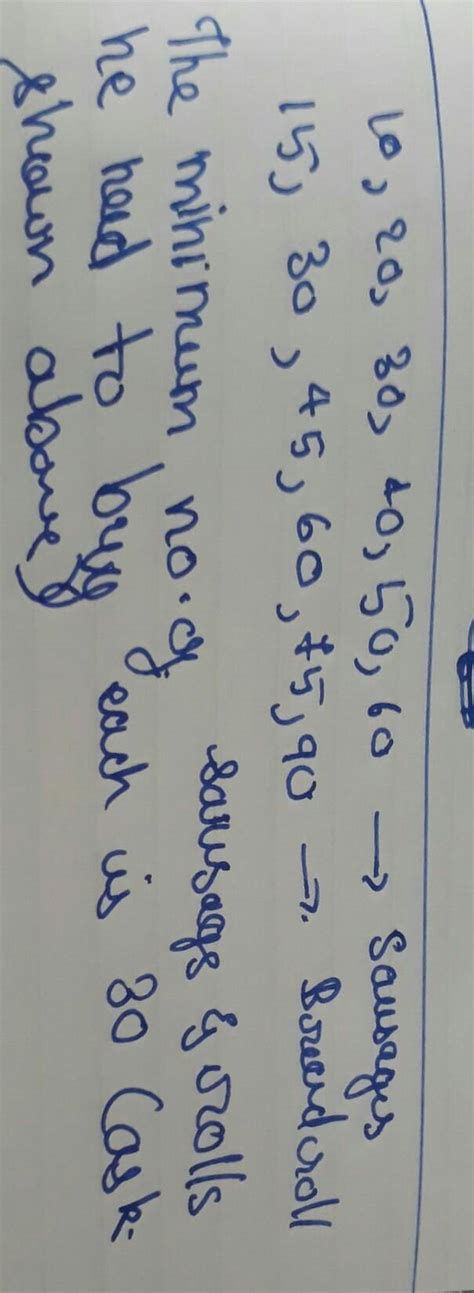 10, 20, 30, 40, 50, 60 → Sausages
15, 30, 45, 60, 75, 90 → Bread roll
The minimum no. of sausags & rolls
he need to buy each is 30 (as
shown above)